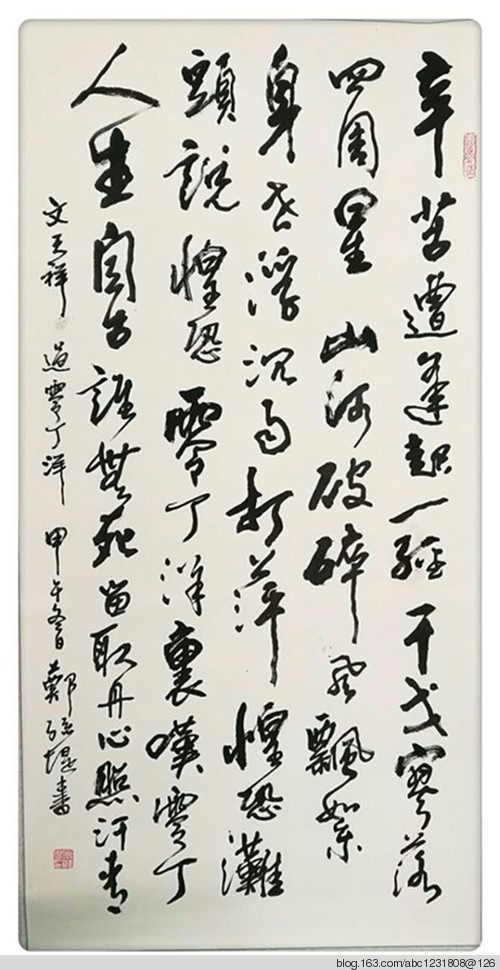 辛苦遭逢起一經干戈寥落
四周星山河破碎風飄絮
身世浮沉雨打萍惶恐灘
頭說惶恐零丁洋裏嘆零丁
人生自古誰無死留取丹心照汗青
文天祥 過零丁洋 甲午冬日 鄭堤書
blog.163.com/abc1231808@126